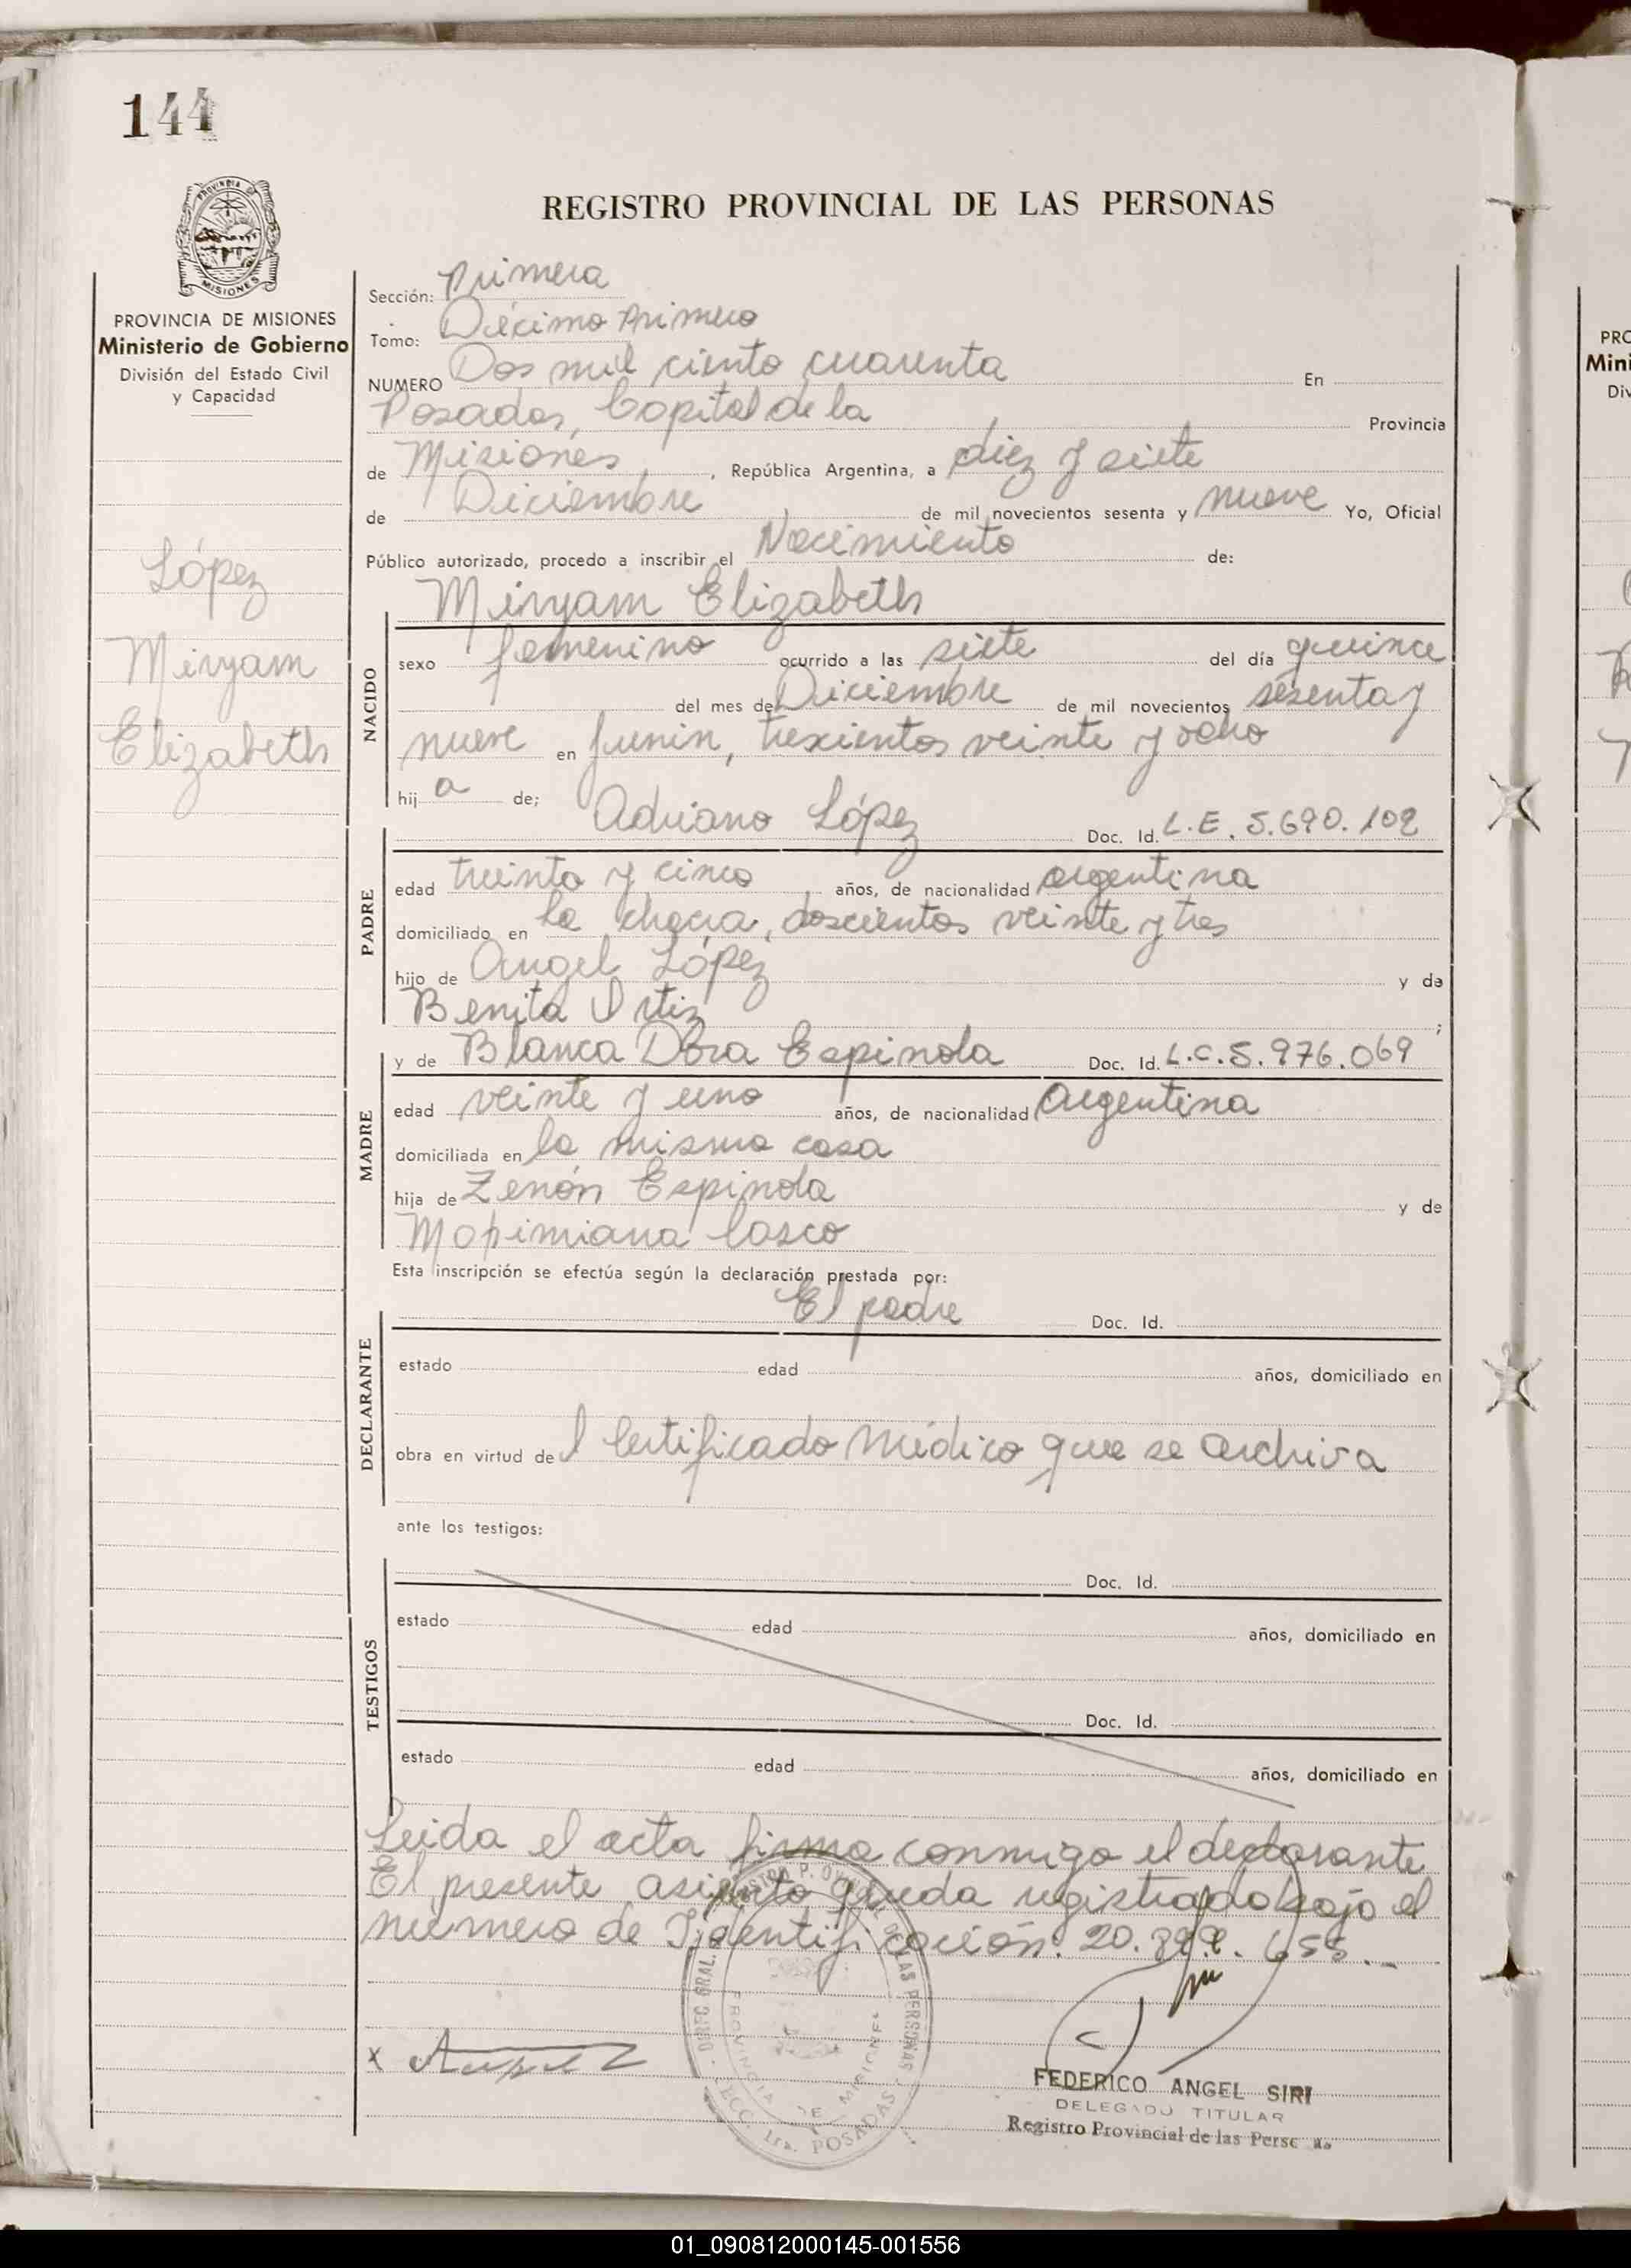 144
REGISTRO PROVINCIAL DE LAS PERSONAS
PROVINCIA DE MISIONES
Ministerio de Gobierno
División del Estado Civil
y Capacidad
López
Miryam
Elizabeth
Sección: Primera
Tomo: Décimo Primero
NUMERO Dos mil ciento cuarenta En
Posadas, Capital de la Provincia
de Misiones, República Argentina, a diez y siete
de Diciembre de mil novecientos sesenta y nueve Yo, Oficial
Público autorizado, procedo a inscribir el Nacimiento de:
Miryam Elizabeth
NACIDO
sexo femenino ocurrido a las siete del día quince
del mes de Diciembre de mil novecientos sesenta y
nueve en Junin, trescientos veinte y ocho
hij a de;
Adriano López Doc. Id. L.E. 5.690.102
PADRE
edad treinta y cinco años, de nacionalidad argentina
domiciliado en la chacra, doscientos veinte y tres
hijo de Angel López y de
Benita Ortiz ;
y de Blanca Dora Espinola Doc. Id. L.C. 5.976.069
MADRE
edad veinte y uno años, de nacionalidad Argentina
domiciliada en la misma casa
hija de Zenón Espinola y de
Esta inscripción se efectúa según la declaración prestada por:
El padre Doc. Id.
DECLARANTE
estado edad años, domiciliado en
obra en virtud de l Certificado Médico que se archiva
ante los testigos:
Doc. Id.
TESTIGOS
estado edad años, domiciliado en
Doc. Id.
estado edad años, domiciliado en
Leida el acta firma conmigo el declarante
El presente asiento queda registrado bajo el
número de Identificación: 20.
x
FEDERICO ANGEL SIRI
DELEGADO TITULAR
Registro Provincial de las Perso as
01_090812000145-001556